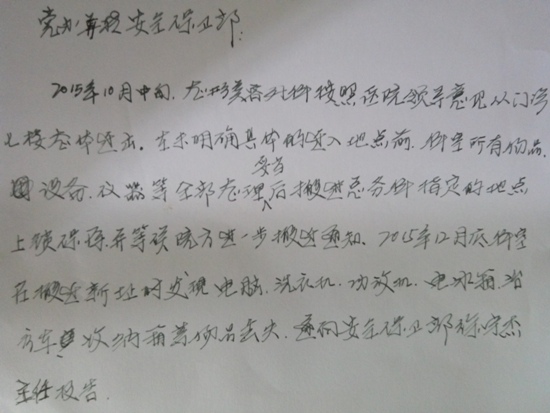 党办并转安全保卫部:
2015年10月中旬,整形美容外科按照医院领导意见从门诊
七楼整体迁出,在未明确具体的迁入地点前,科室所有物品
设备、仪器等全部整理妥当后搬迁总务科指定的地点
上锁保存并等候院方进一步搬迁通知。2015年12月底科室
在搬迁新址时发现电脑、洗衣机、功放机、电冰箱、治
疗车、收纳箱等物品丢失,遂向安全保卫部徐守杰
主任报告.